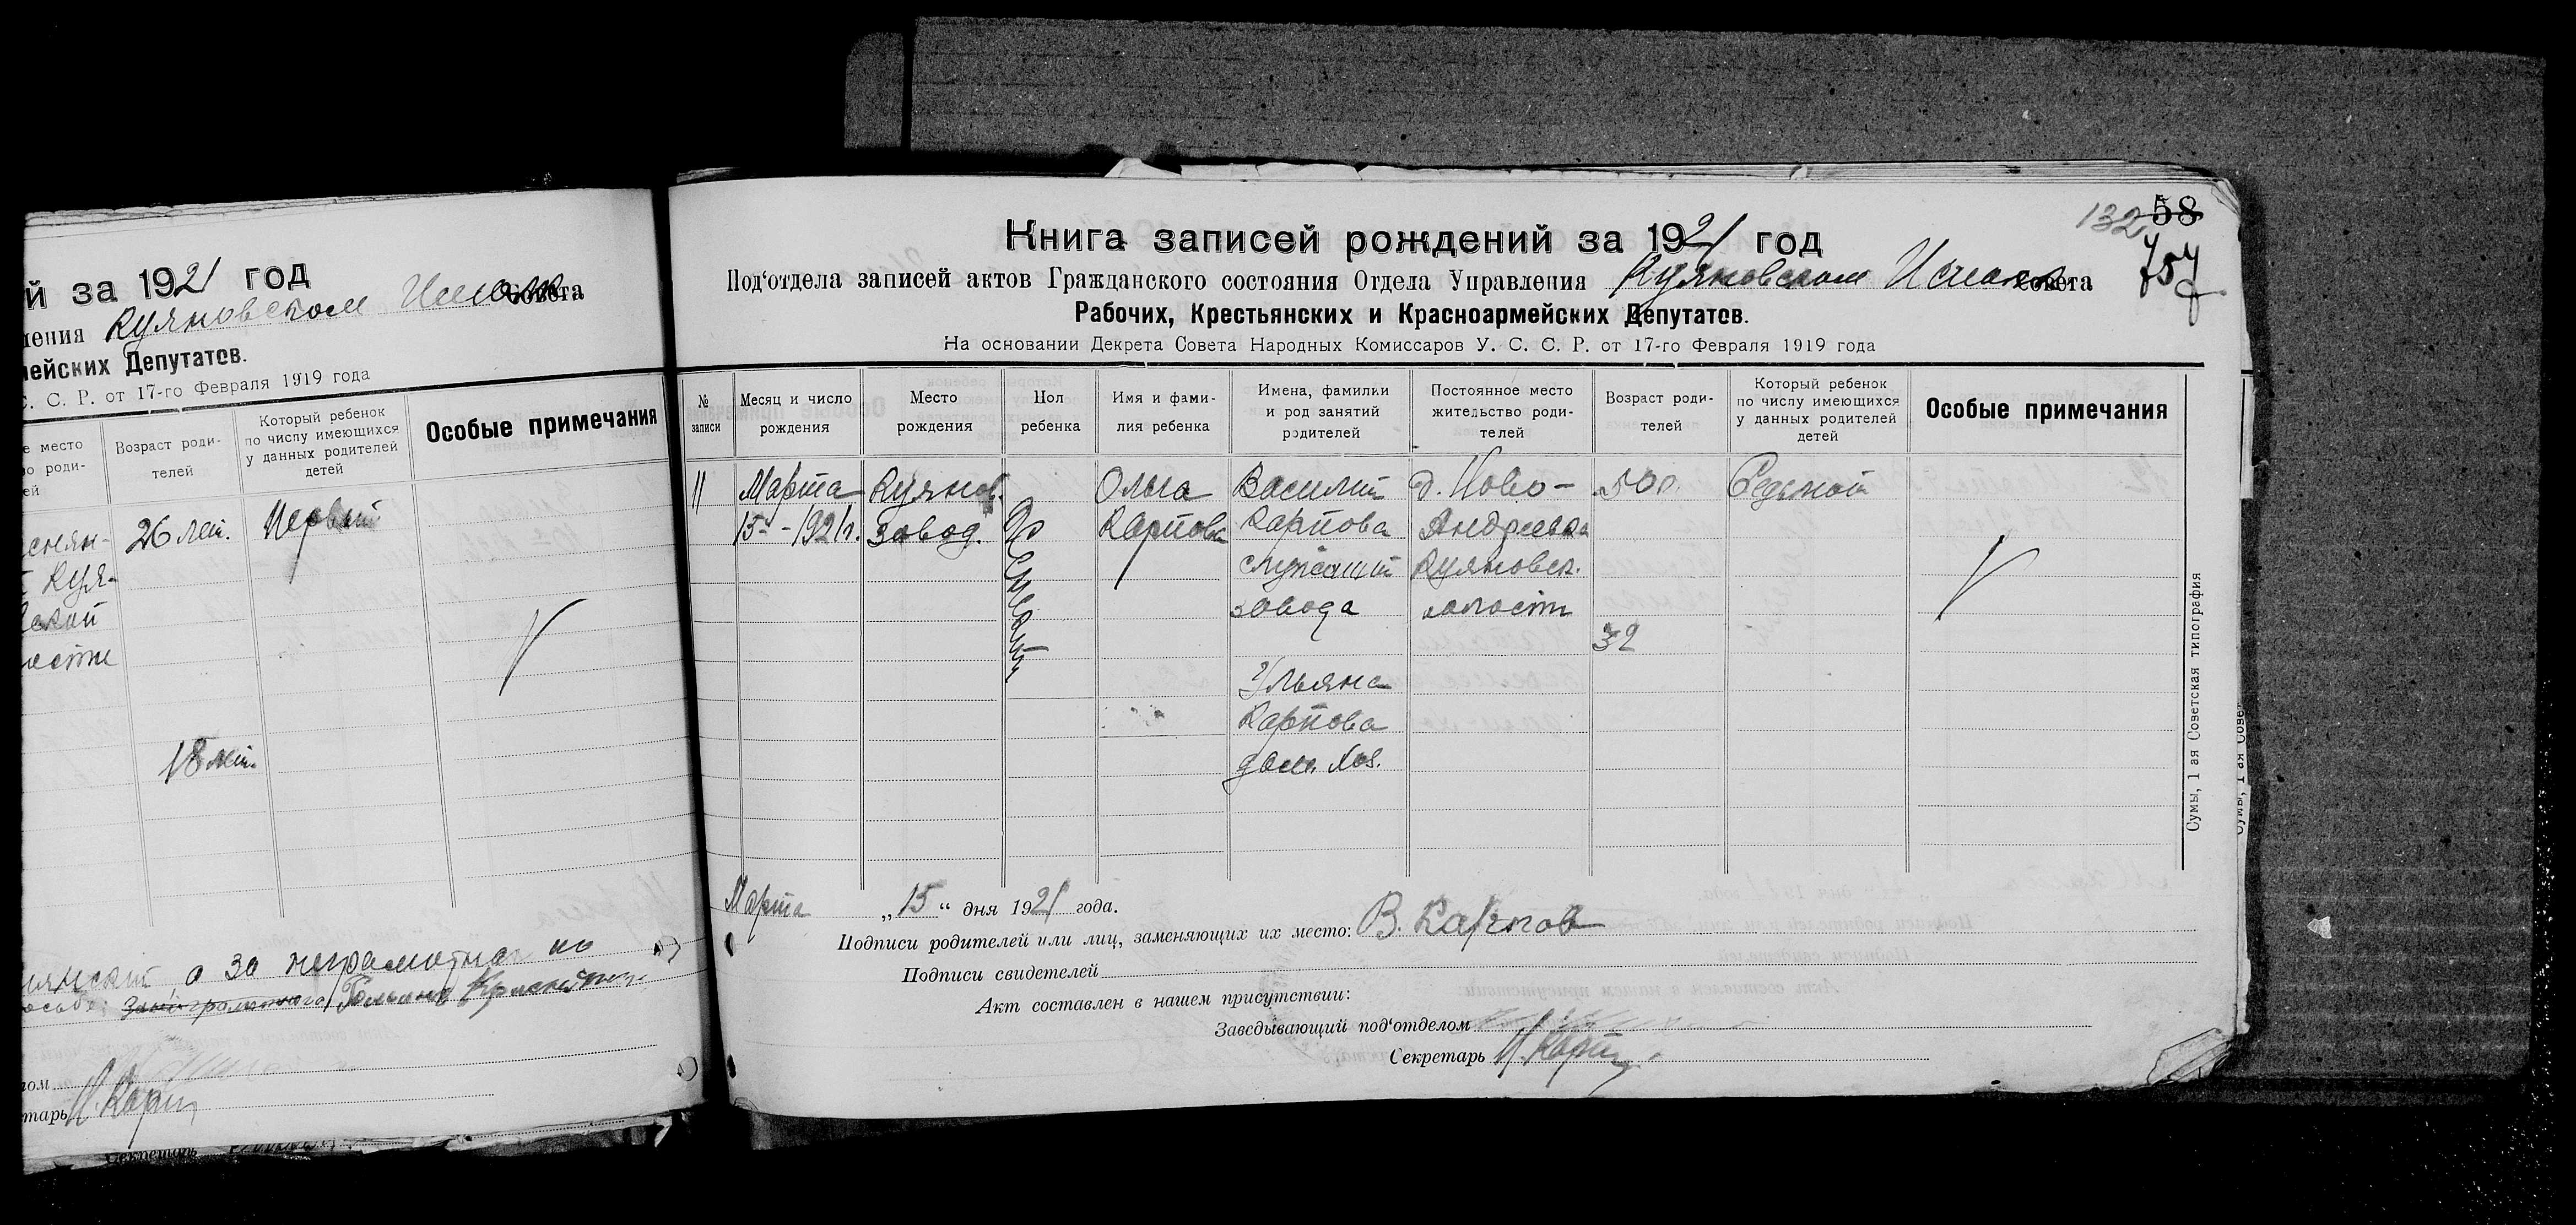 й за 1921 год
ления Куяновском Исполк. совета
мейских Депутатов.
С. С. Р. от 17-го Февраля 1919 года
е место
во роди-
ей
Возраст роди-
телей
Который ребенок
по числу имеющихся
у данных родителей
детей
Особые примечания
26 лет.
Первый
Куя-
ской
18 лет.
а за неграмотная по
тарь
Секретарь
132 58
Книга записей рождений за 1921 год
Под'отдела записей актов Гражданского состояния Отдела Управления Куяновском Исполк. совета
Рабочих, Крестьянских и Красноармейских Депутатов.
На основании Декрета Совета Народных Комиссаров У. С. С. Р. от 17-го Февраля 1919 года
№
записи
Месяц и число
рождения
Место
рождения
Пол
ребенка
Имя и фами-
лия ребенка
Имена, фамилии
и род занятий
родителей
Постоянное место
жительство роди-
телей
Возраст роди-
телей
Который ребенок
по числу имеющихся
у данных родителей
детей
Особые примечания
11
Марта
15 - 1921г.
Куянов.
Завод.
Женский
Ольга
Карпова
Василий
Карпова
служащий
завода
Ульяна
Карпова
дом. хоз.
д. Ново-
Андреевка
Куяновск.
волости
50
32
Седьмой
Марта „15“ дня 1921 года.
Подписи родителей или лиц, заменяющих их место: В. Карпов
Подписи свидетелей
Акт составлен в нашем присутствии:
Заведывающий под'отделом
Секретарь
Сумы, 1 ая Советская типография
Сумы, 1 ая Сове